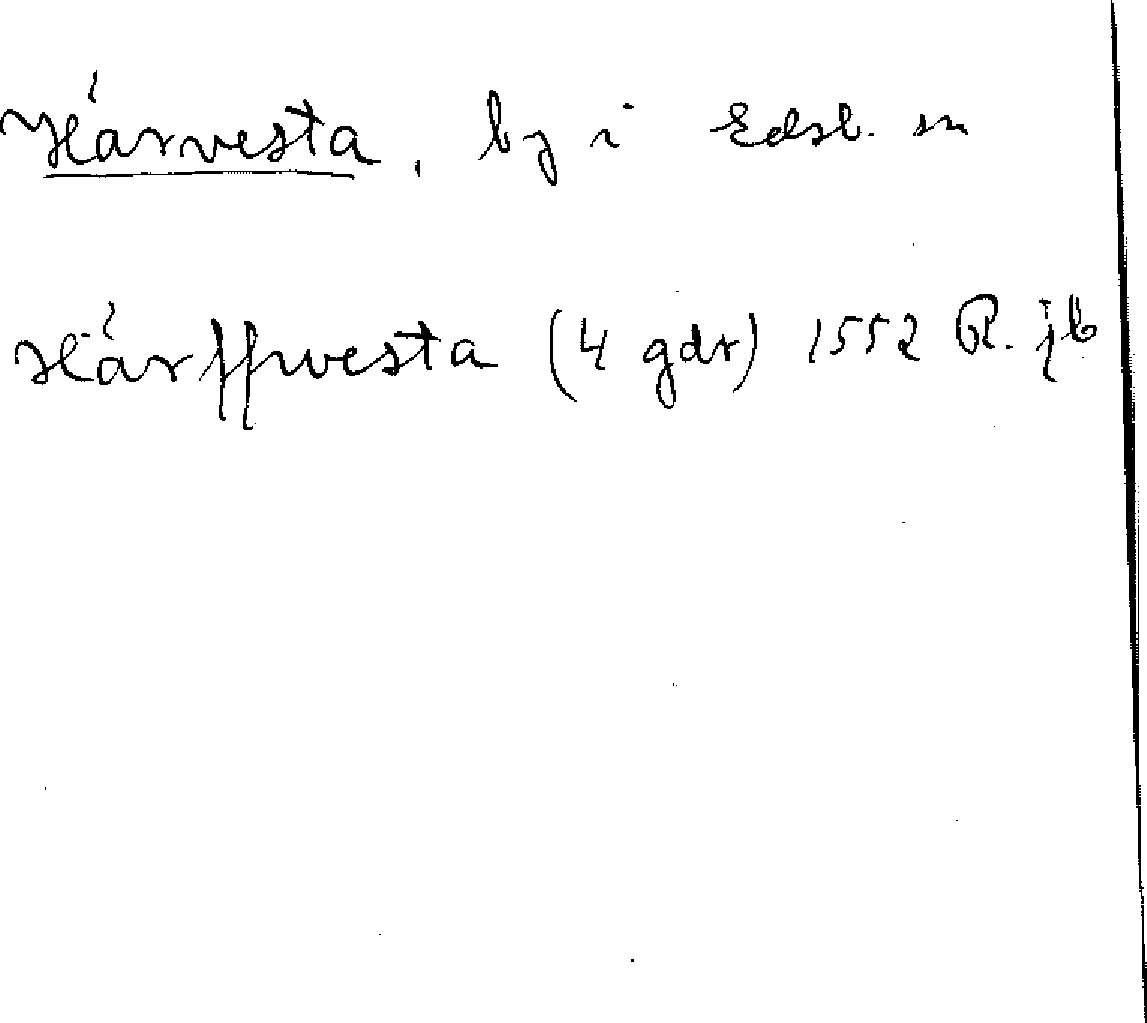 Härvesta, by i Edsb. sn
Härffwesta (4 gdr) 1552 R. jb